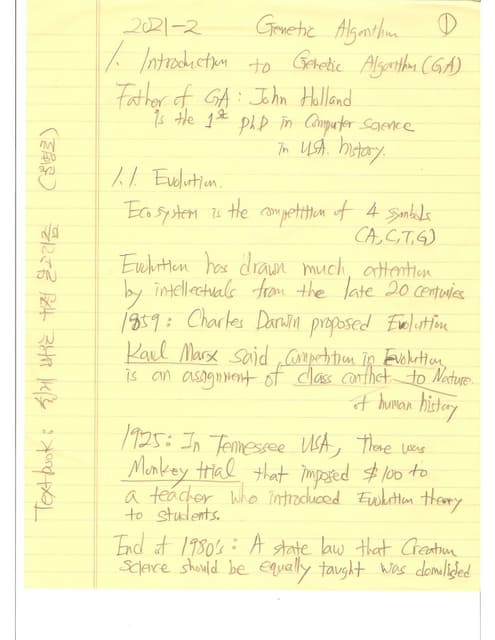 2021-2 Genetic Algorithm ①
1. Introduction to Genetic Algorithm (GA)
Father of GA: John Holland
is the 1st phD in Computer science
in USA history.
1.1. Evolution.
Eco system is the competition of 4 symbols
(A, C, T, G)
Evolution has drawn much attention
by intellectuals from the late 20 centuries
1859: Charles Darwin proposed Evolution
Karl Marx said, Competition in Evolution
is an assignment of class conflict to Nature.
of human history
1925: In Tennessee USA, There was
Monkey trial that imposed $100 to
a teacher who introduced Evolution theory
to students.
End of 1980's: A state law that Creation
Science should be equally taught was demolished
Textbook: 쉽게 배우는 유전 알고리즘 (문병로)